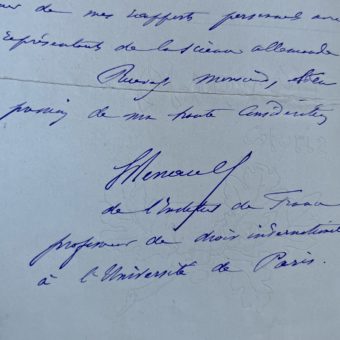 de mes rapports personnels avec
représentants de la science allemande
Recevez, monsieur,
de ma haute considération
L Renault
de l'Institut de France
professeur de droit international
à l'Université de Paris.